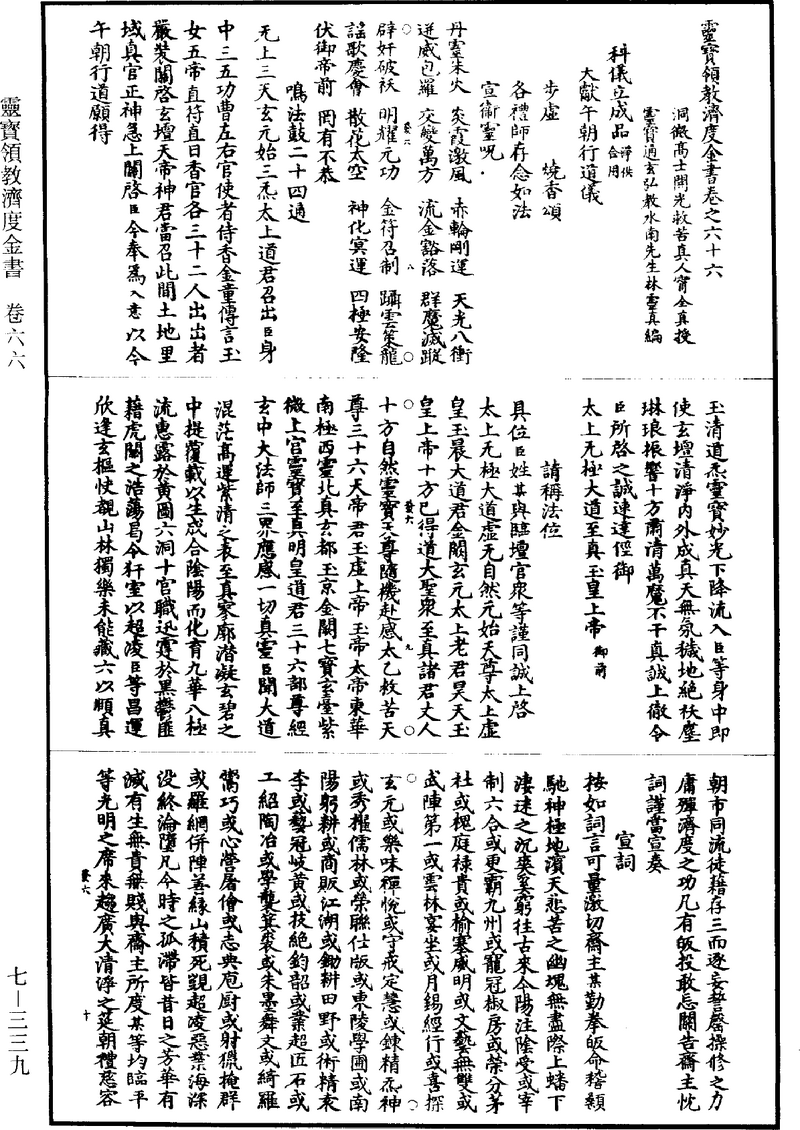 靈寶領教濟度金書卷之六十六
洞微高士開光救苦真人甯全真授
靈寶通玄弘教水南先生林靈真編
科儀立成品淨供合用
大獻午朝行道儀
步虛　燒香頌
各禮師存念如法
宣衛靈呪
丹靈朱火　炎霞激風　赤輪剛運　天光八衝
迸威包羅　交變萬方　流金豁落　群魔滅蹤
辟奸破祅　明耀元功　金符召制　躡雲策龍
謠歌慶會　散花太空　神化冥運　四極安隆
伏御帝前　罔有不恭
鳴法鼓二十四通
无上三天玄元始三炁太上道君召出臣身
中三五功曹左右官使者侍香金童傳言玉
女五帝直符直日香官各三十二人出出者
嚴裝關啓玄壇天帝神君當召此間土地里
域真官正神急上關啓臣今奉爲入意以今
午朝行道願得
玉清道炁靈寶妙光下降流入臣等身中即
使玄壇清淨內外成真天無氛穢地絕祅塵
琳琅振響十方肅清萬魔不干真誠上徹令
臣所啓之誠速達徑御
太上无極大道至真玉皇上帝御前
請稱法位
具位臣姓某與臨壇官衆等謹同誠上啓
太上无極大道虛无自然元始天尊太上虛
皇玉晨大道君金闕玄元太上老君昊天玉
皇上帝十方已得道大聖衆至真諸君丈人
十方自然靈寶天尊隨機赴感太乙救苦天
尊三十六天帝君玉虛上帝玉帝大帝東華
南極西靈北真玄都玉京金闕七寶玄臺紫
微上宮靈寶至真明皇道君三十六部尊經
玄中大法師三界應感一切真靈臣聞大道
混茫高運紫清之表至真寥廓潛凝玄碧之
中提覆載以生成合陰陽而化育九華八極
流惠露於黃圖六洞十宮職迅霆於黑欝匪
藉虎關之浩蕩曷令犴室以超淩臣等昌運
欣逢玄樞忱覩山林獨樂未能藏六以順真
朝市同流徒藉存三而逐妄誓罄操修之力
庸殫濟度之功凡有皈投敢忘關告齋主忱
詞謹當宣奏
宣詞
按如詞言可量激切齋主某勤拳皈命稽顙
馳神極地濵天悲苦之幽塊無盡際上蟠下
淒迷之沉爽奚窮往古來今陽注陰受或宰
制六合或更霸九州或寵冠椒房或榮分茅
社或槐庭祿貴或榆塞威明或文藝無雙或
武陣第一或雲林宴坐或月錫經行或喜探
玄元或樂味禪悅或守戒定慧或鍊精炁神
或秀擢儒林或榮聯仕版或東陵學圃或南
陽躬耕或商販江湖或鋤耕田野或術精袁
李或藝冠岐黃或技絕鈞韶或業超匠石或
工紹陶冶或學襲箕裘或朱墨舞文或綺羅
鬻巧或心營屠儈或志典庖厨或射獵掩群
或羅網併陣善緣山積死覬超淩惡業海深
没終淪墮凡今時之孤滯皆昔日之芳華有
滅有生無貴無賤與齋主所度某等均臨平
等光明之席來趨廣大清淨之筵朝禮慈容
靈寶領教濟度金書　卷六六
七—三三九